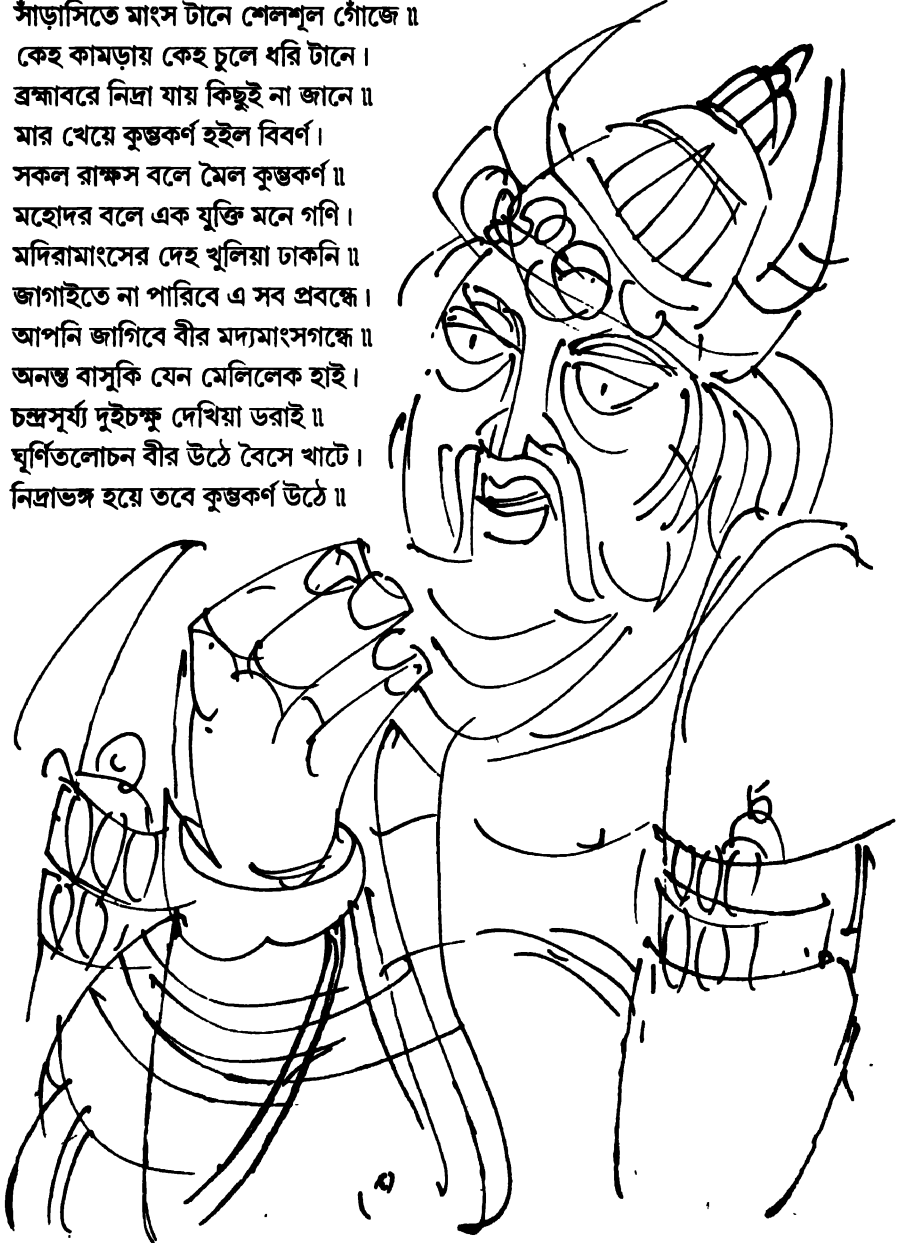 সাঁড়াসিতে মাংস টানে শেলশূল গোঁজে॥
কেহ কামড়ায় কেহ চুলে ধরি টানে।
ব্রহ্মাবরে নিদ্রা যায় কিছুই না জানে॥
মার খেয়ে কুম্ভকর্ণ হইল বিবর্ণ।
সকল রাক্ষস বলে মৈল কুম্ভকর্ণ॥
মহোদর বলে এক যুক্তি মনে গণি।
মদিরামাংসের দেহ খুলিয়া ঢাকনি॥
জাগাইতে না পারিবে এ সব প্রবন্ধে।
আপনি জাগিবে বীর মদ্যমাংসগন্ধে॥
অনন্ত বাসুকি যেন মেলিলেক হাই।
চন্দ্রসূর্য্য দুইচক্ষু দেখিয়া ডরাই॥
ঘূর্ণিতলোচন বীর উঠে বৈসে খাটে।
নিদ্রাভঙ্গ হয়ে তবে কুম্ভকর্ণ উঠে॥